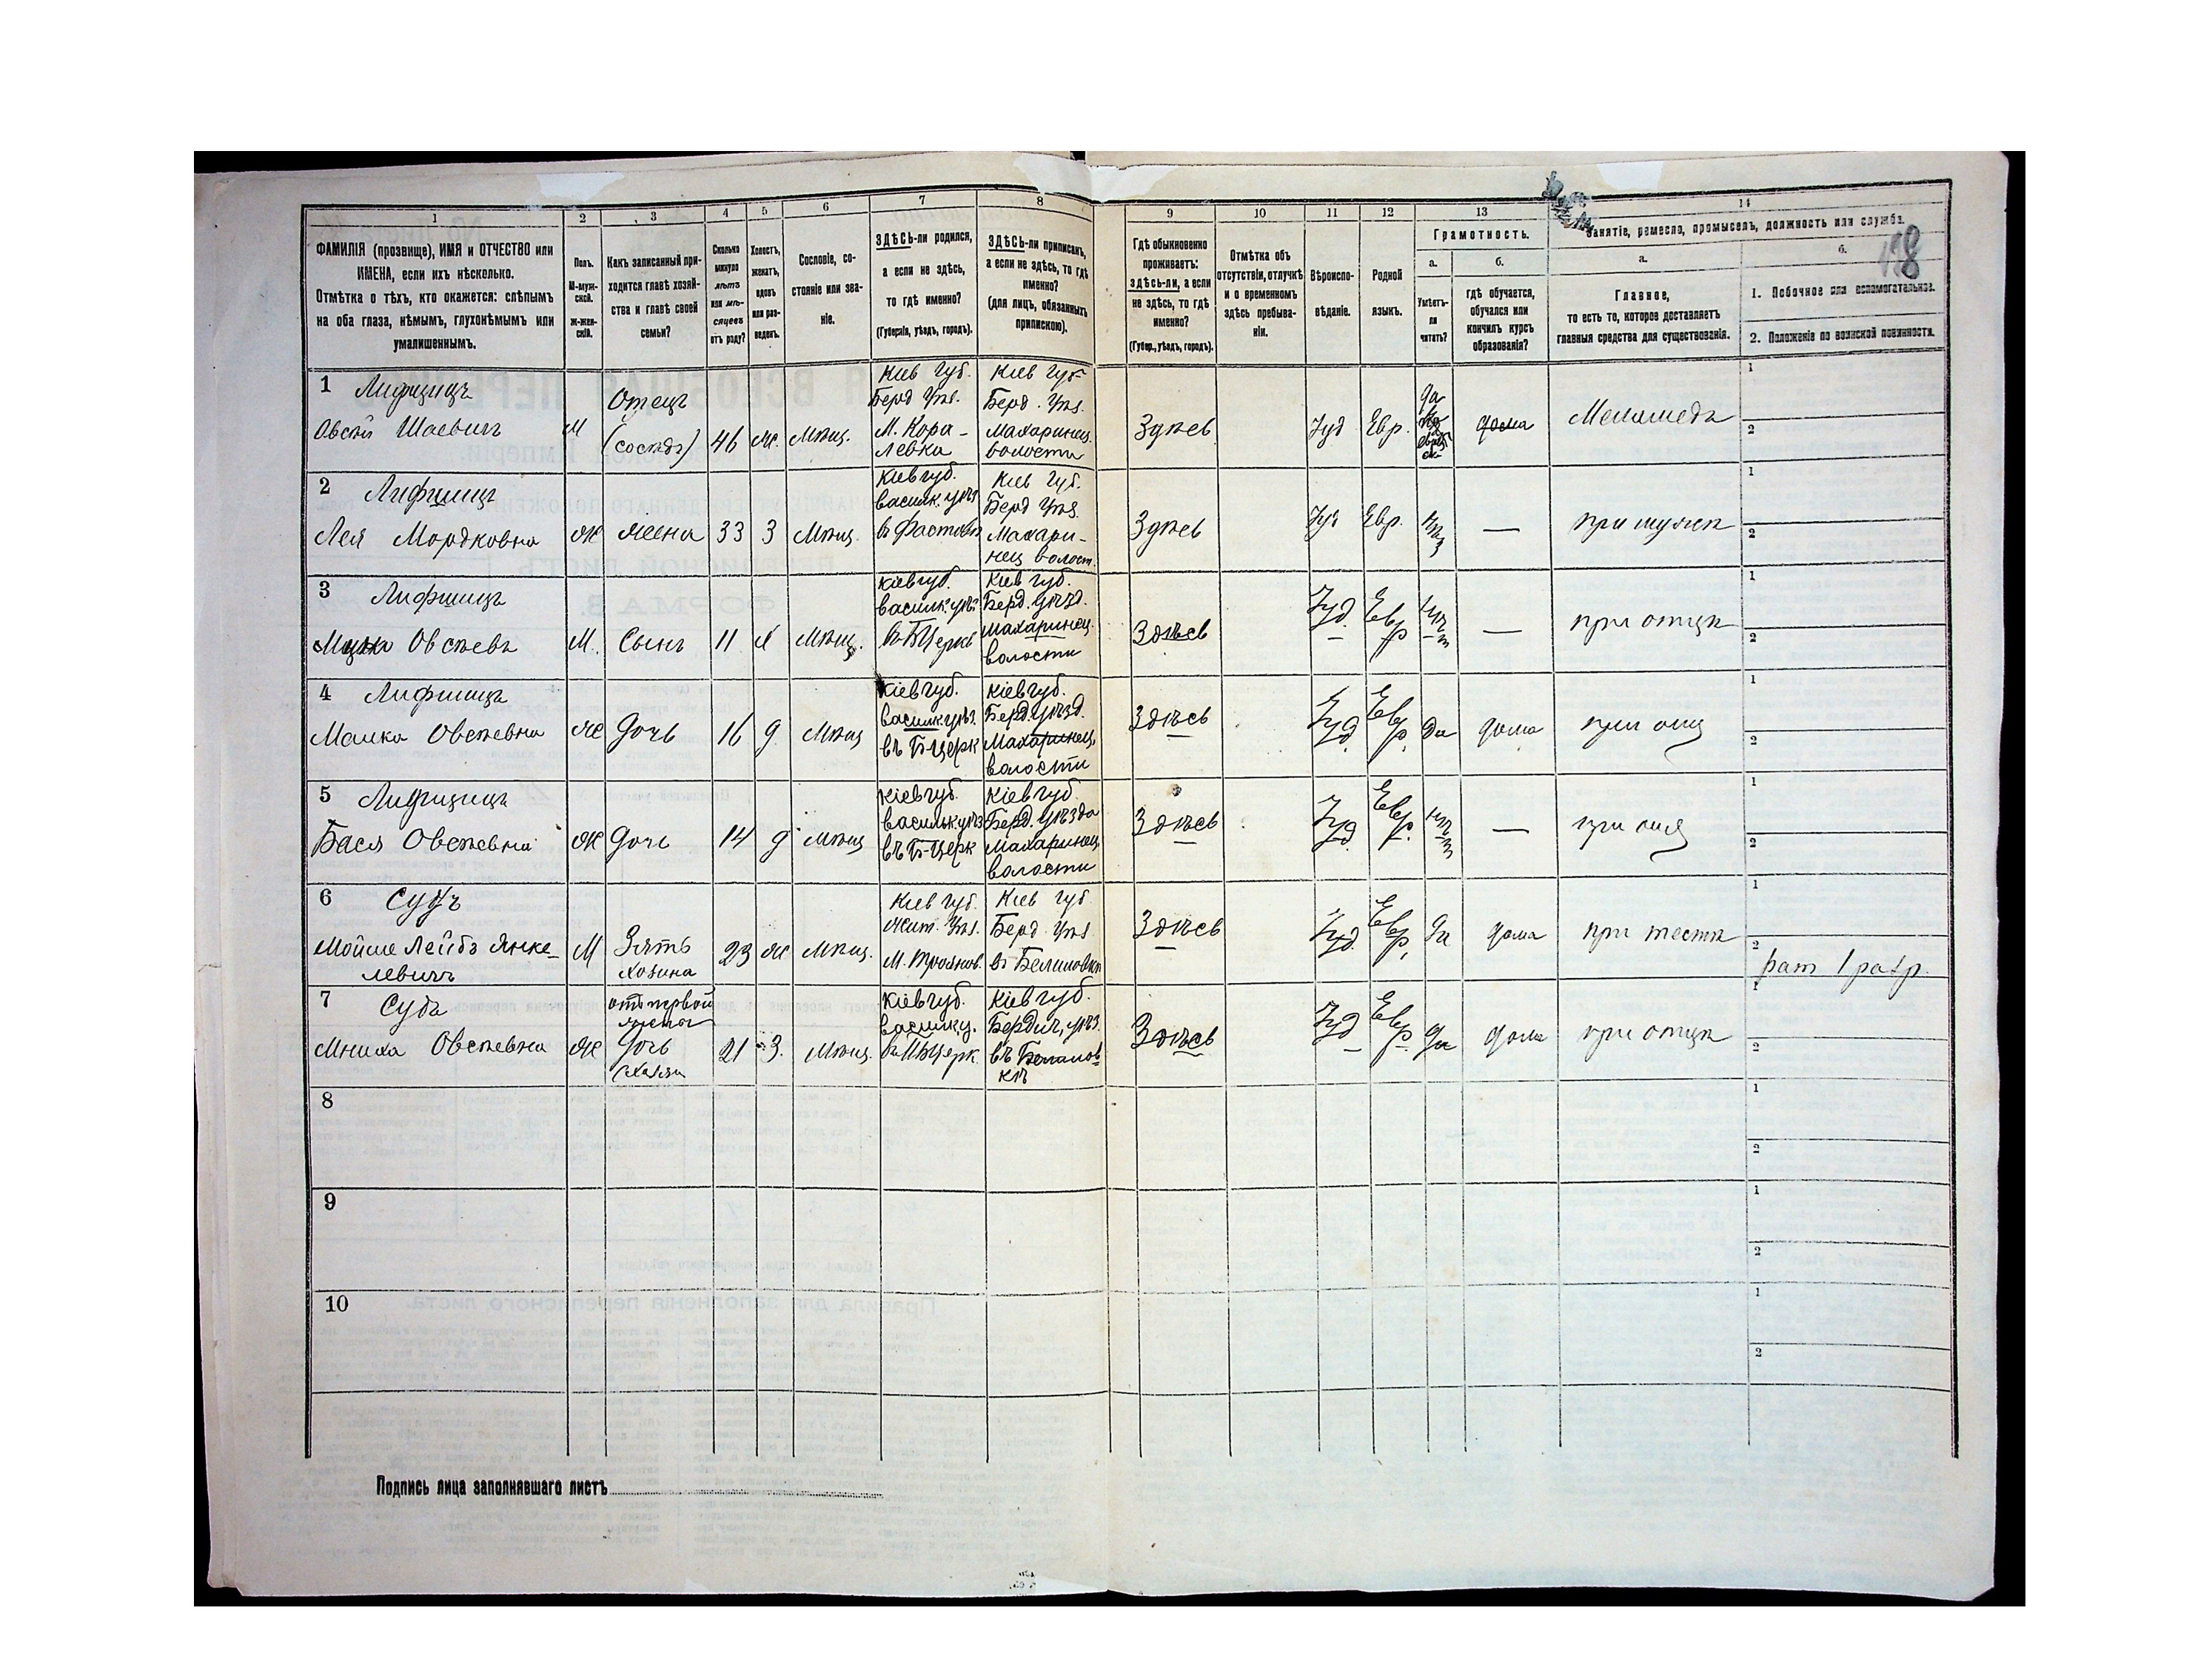 1 2 3 4 5 6 7 8 9 10 11 12 13 14
ФАМИЛІЯ (прозвище), ИМЯ и ОТЧЕСТВО или
ИМЕНА, если ихъ нѣсколько.
Отмѣтка о тѣхъ, кто окажется: слѣпымъ
на оба глаза, нѣмымъ, глухонѣмымъ или
умалишеннымъ.
Полъ.
М-муж-
ской.
Ж-жен-
скій.
Какъ записанный при-
ходится главѣ хозяй-
ства и главѣ своей
семьи?
Сколько
минуло
лѣтъ
или мѣ-
сяцевъ
отъ роду?
Холостъ,
женатъ,
вдовъ
или раз-
веденъ.
Сословіе, со-
стояніе или зва-
ніе.
ЗДѢСЬ-ли родился,
а если не здѣсь,
то гдѣ именно?
(Губернія, уѣздъ, городъ).
ЗДѢСЬ-ли приписанъ,
а если не здѣсь, то гдѣ
именно?
(для лицъ, обязанныхъ
припискою).
Гдѣ обыкновенно
проживаетъ:
здѣсь-ли, а если
не здѣсь, то гдѣ
именно?
(Губер., уѣздъ, городъ).
Отмѣтка объ
отсутствіи, отлучкѣ
и о временномъ
здѣсь пребыва-
ніи.
Вѣроиспо-
вѣданіе.
Родной
языкъ.
Грамотность.
а.
Умѣетъ-
ли
читать?
б.
гдѣ обучается,
обучался или
кончилъ курсъ
образованія?
Занятіе, ремесло, промыселъ, должность или служба.
а.
Главное,
то есть то, которое доставляетъ
главныя средства для существованія.
б.
1. Побочное или вспомогательное.
2. Положеніе по воинской повинности.
1 Лифшицъ
Овсѣй Шаевичъ
М
Отецъ
(сосѣдъ)
46
ж.
Мѣщ.
Кіев Губ.
Берд Уѣз.
М. Кора-
левка
Кіев Губ
Берд. Уѣз.
Махаринец.
волости
Здѣсь
Іуд
Евр.
да
дома
Меламедъ
1
2
2 Лифшицъ
Лея Мордковна
Ж
жена
33
З
Мѣщ.
Кіев губ.
васильк. уѣз
в Фастовѣ
Кіев Губ.
Берд Уѣз.
Махари-
нец волост.
Здѣсь
Іуд
Евр.
нѣт
—
при мужѣ
1
2
3 Лифшицъ
Овсѣевъ
М.
Сынъ
11
Мѣщ.
Кіев губ.
васильк. уѣз.
Кіев губ.
Берд. уѣзд.
Махаринец.
волости
Здѣсь
Іуд.
Евр
нѣт
—
при отцѣ
1
2
4 Лифшицъ
Малка Овсѣевна
Ж
Дочь
16
д
Мѣщ
Кіев губ.
васильк уѣз.
въ Б-Церк
Кіев губ.
Берд. уѣзд.
Махаринец.
волости
Здѣсь
Іуд
Евр.
да
дома
при отц
1
2
5 Лифшицъ
Бася Овсѣевна
Ж
Дочь
14
д
Мѣщ
Кіев губ.
васильк. уѣз
въ Б-Церк
Кіев губ
Берд. уѣзда
Махаринец
волости
Здѣсь
Іуд
Евр.
нѣт
—
при отц
1
2
6 Судъ
Мойше Лейбъ Янке-
левичъ
М
Зять
хозяина
23
ж
Мѣщ.
Кіев губ.
Жит. Уѣз.
М. Троянов.
Кіев губ
Берд. Уѣз
в Белиловкѣ
Здѣсь
Іуд.
Евр,
да
дома
при тестѣ
1
2
рат 1 разр.
7 Судъ
Овсѣевна
Ж
отъ первой
жены
Дочь
21
З.
Мѣщ.
Кіев губ.
васильк. у.
Кіев губ.
Бердич, уѣз.
въ Белилов-
кѣ
Здѣсь
Іуд
Евр.
да
дома
при отцѣ
1
2
8
1
2
9
1
2
10
1
2
Подпись лица заполнявшаго листъ